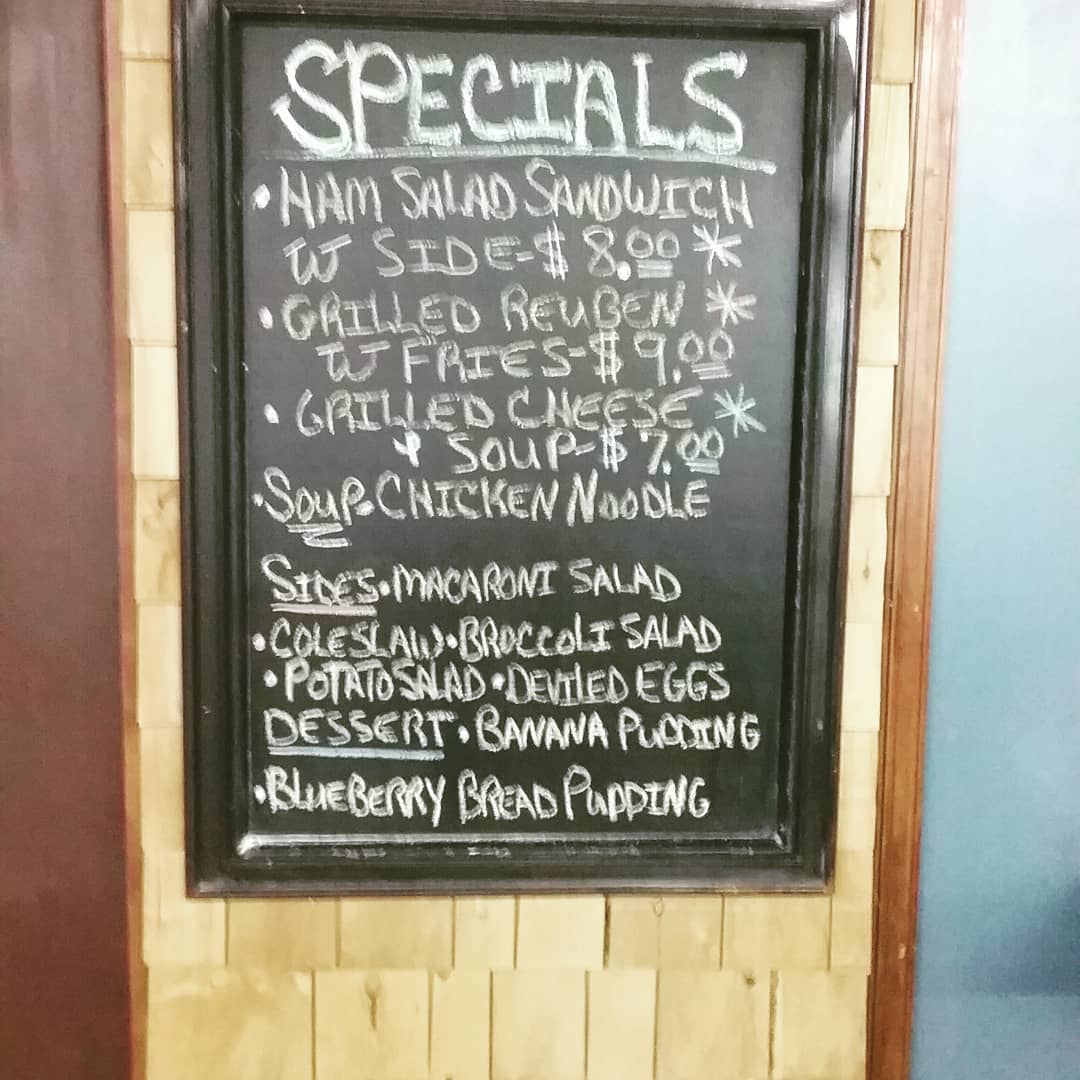 SPECIALS
• HAM SALAD SANDWICH
W SIDE-$ 8.00 *
• GRILLED REUBEN *
W FRIES-$ 9.00
• GRILLED CHEESE *
& SOUP-$ 7.00
• SOUP • CHICKEN NOODLE
SIDES • MACARONI SALAD
• COLESLAW • BROCCOLI SALAD
• POTATO SALAD • DEVILED EGGS
DESSERT • BANANA PUDDING
• BLUEBERRY BREAD PUDDING